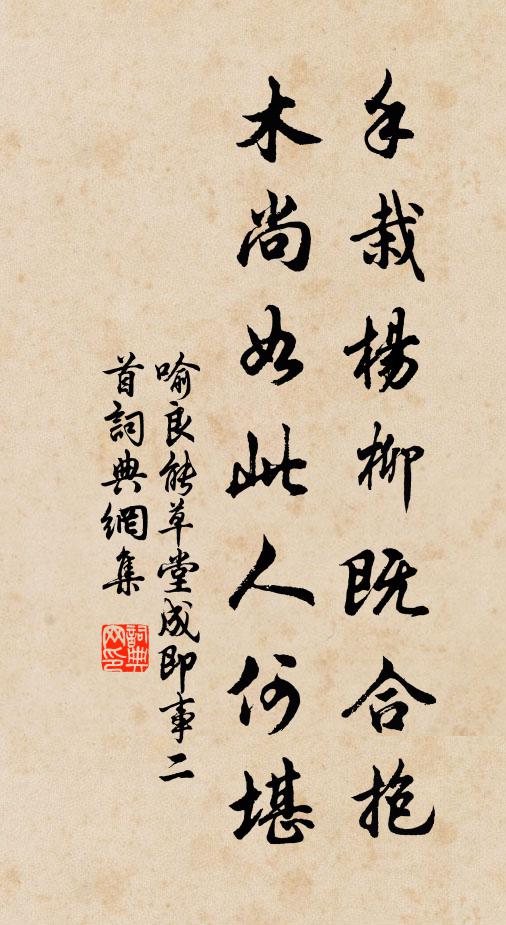 手栽楊柳既合抱
木尚如此人何堪
喻良能草堂成即事二
首詞典網集
詞典
网印